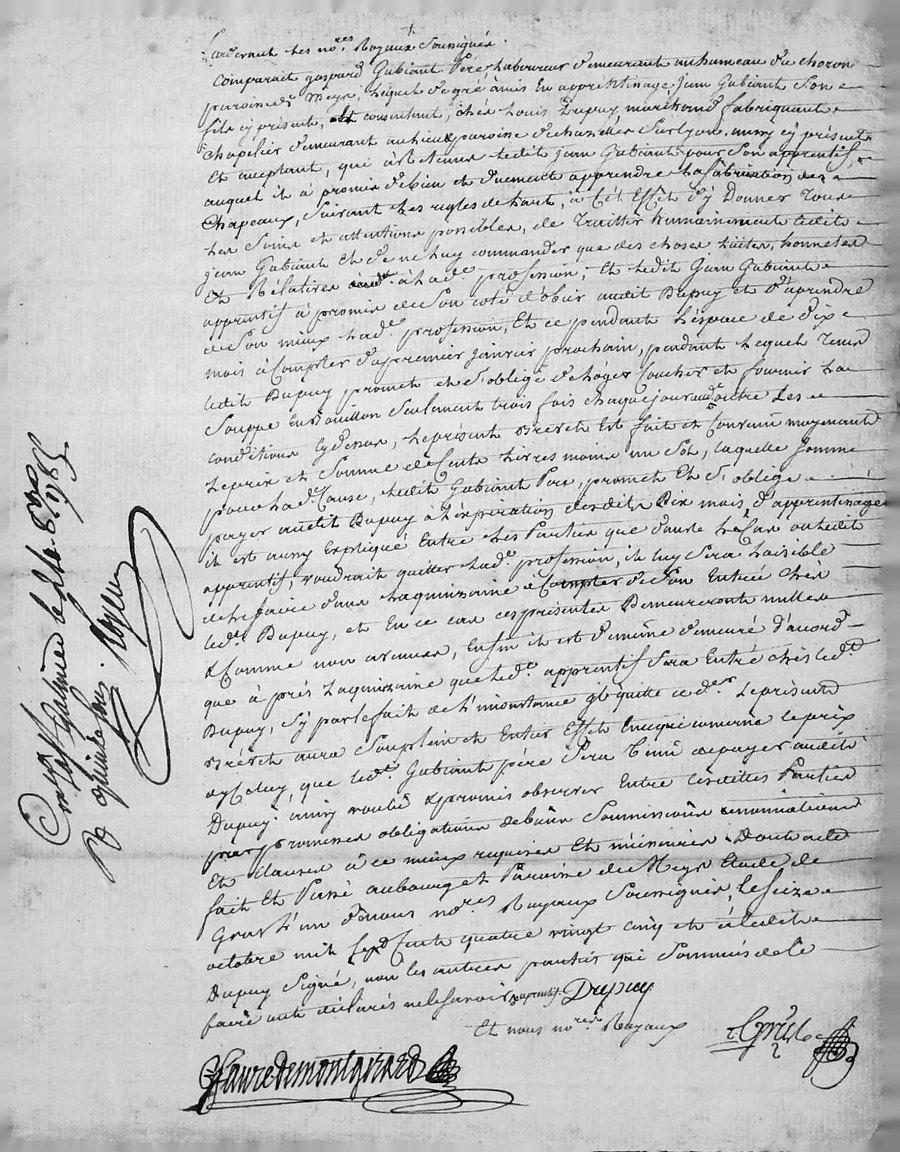 Pardevant les no.res Royaux Soussignés.
Comparait gaspard Gubiant Père, laboureur demeurant au hameau du choron
paroisse de Meys, lequel de gré à mis En apprentissage Jean Gubiant Son
fils cy présent, et consentant, chés Louis Dupuy marchand fabriquant
chapelier demeurant au lieu et paroisse de chazelles Surlyon, aussy cy présent
Et acceptant, qui à retenue ledit jean Gubiant pour Son apprentif
auquel il à promis de bien et duement apprendre la fabrication des
Chapeaux, Suivant les regles de l'art, à Cet Effet d'y Donner Tous
les Soins et attentions possibles, de Traitter humainement ledit
jean Gubiant Et de ne luy commander que des choses licites, honnetes
Et Rélatives à lad.e profession, Et ledit Jean Gubiant
apprentif à promis de Son coté d'obeir audit Dupuy et d'aprendre
de Son mieux lad.e profession, Et ce pendant l'éspace de dix
mois à Compter du premier Janvier prochain, pendant lequel Tems
ledit Dupuy promet et S'oblige de loger Coucher et fournir la
Souppe En Bouillon Seulement trois fois chaque jour outre Les
conditions cydessus, le présent Brevet Est fait et Convenu moyenant
le prix et Somme de Cents livres moins un Sol, laquelle Somme
pour lad.e Cause, ledit Gubiant Père, promet Et S'oblige
payer audit Dupuy à l'expiration desdits Dix mois d'apprentissage
il est aussy Expliqué Entre les Parties que dans le Cas ou ledit
apprentif, voudrait quitter lad.e profession, il luy Sera loisible
de le faire dans la quinzaine à Compter de Son Entrée chés
led.t Dupuy, et En ce cas ces présentes Demeureront nulles
& Comme non avenues, Enfin il est de même demeuré d'acord
que à prés la quinzaine que led.t apprentif Sera Entré chés led.t
Dupuy, Sy par le fait de l'inconstance il quitte led.t le présent
Brevet aura Son plein et Entier Effet En ce qui concerne le prix
d'yceluy, que led.t Gubiant père Sera Tenu de payer audit
Dupuy. ainsy voulu & promis observer Entre lesdittes Parties
par promesses obligations de biens Soumissions renonciations
Et clauses à ce mieux requises Et nécessaires. Dont acte
fait Et Passé au bourg et Paroisse de Meys Etude de
Gras L'un de nous no.res Royaux Soussignés, le Seize
octobre mil Sept Cent quatre vingt cinq et à ledit
Dupuy Signé, non les autres parties qui Sommés de le
faire ont déclarés ne le Savoir Dupuy
Et nous no.res Royaux
Faure de montgirard
Con.lé à St Galmier le 8bre 1785
R quinze Sols